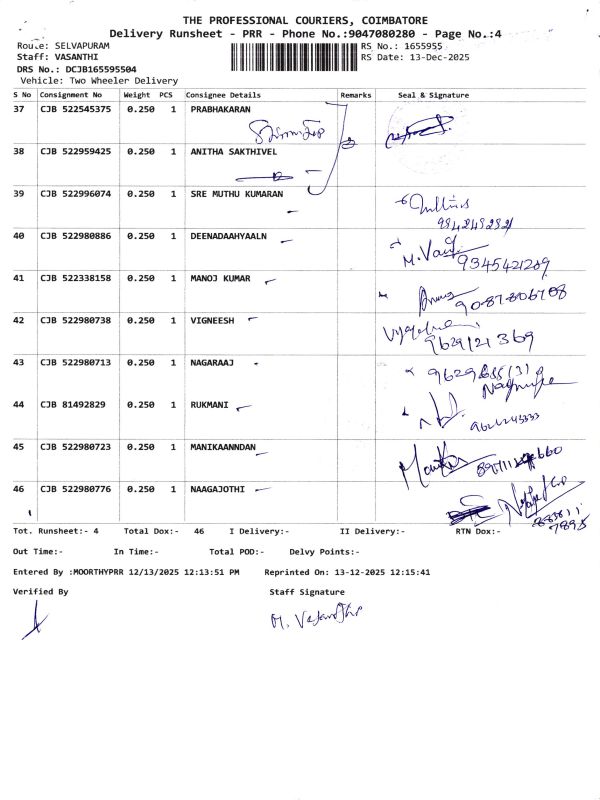 THE PROFESSIONAL COURIERS, COIMBATORE
Delivery Runsheet - PRR - Phone No.:9047080280 - Page No.:4
Route: SELVAPURAM
RS No.: 1655955
Staff: VASANTHI
RS Date: 13-Dec-2025
DRS No.: DCJB165595504
Vehicle: Two Wheeler Delivery
S No Consignment No Weight PCS Consignee Details Remarks Seal & Signature
37 CJB 522545375 0.250 1 PRABHAKARAN
38 CJB 522959425 0.250 1 ANITHA SAKTHIVEL
39 CJB 522996074 0.250 1 SRE MUTHU KUMARAN
40 CJB 522980886 0.250 1 DEENADAAHYAALN
9345421209
41 CJB 522338158 0.250 1 MANOJ KUMAR
42 CJB 522980738 0.250 1 VIGNEESH
9629121369
43 CJB 522980713 0.250 1 NAGARAAJ
44 CJB 81492829 0.250 1 RUKMANI
45 CJB 522980723 0.250 1 MANIKAANNDAN
46 CJB 522980776 0.250 1 NAAGAJOTHI
Tot. Runsheet:- 4 Total Dox:- 46 I Delivery:- II Delivery:- RTN Dox:-
Out Time:- In Time:- Total POD:- Delvy Points:-
Entered By :MOORTHYPRR 12/13/2025 12:13:51 PM Reprinted On: 13-12-2025 12:15:41
Verified By Staff Signature